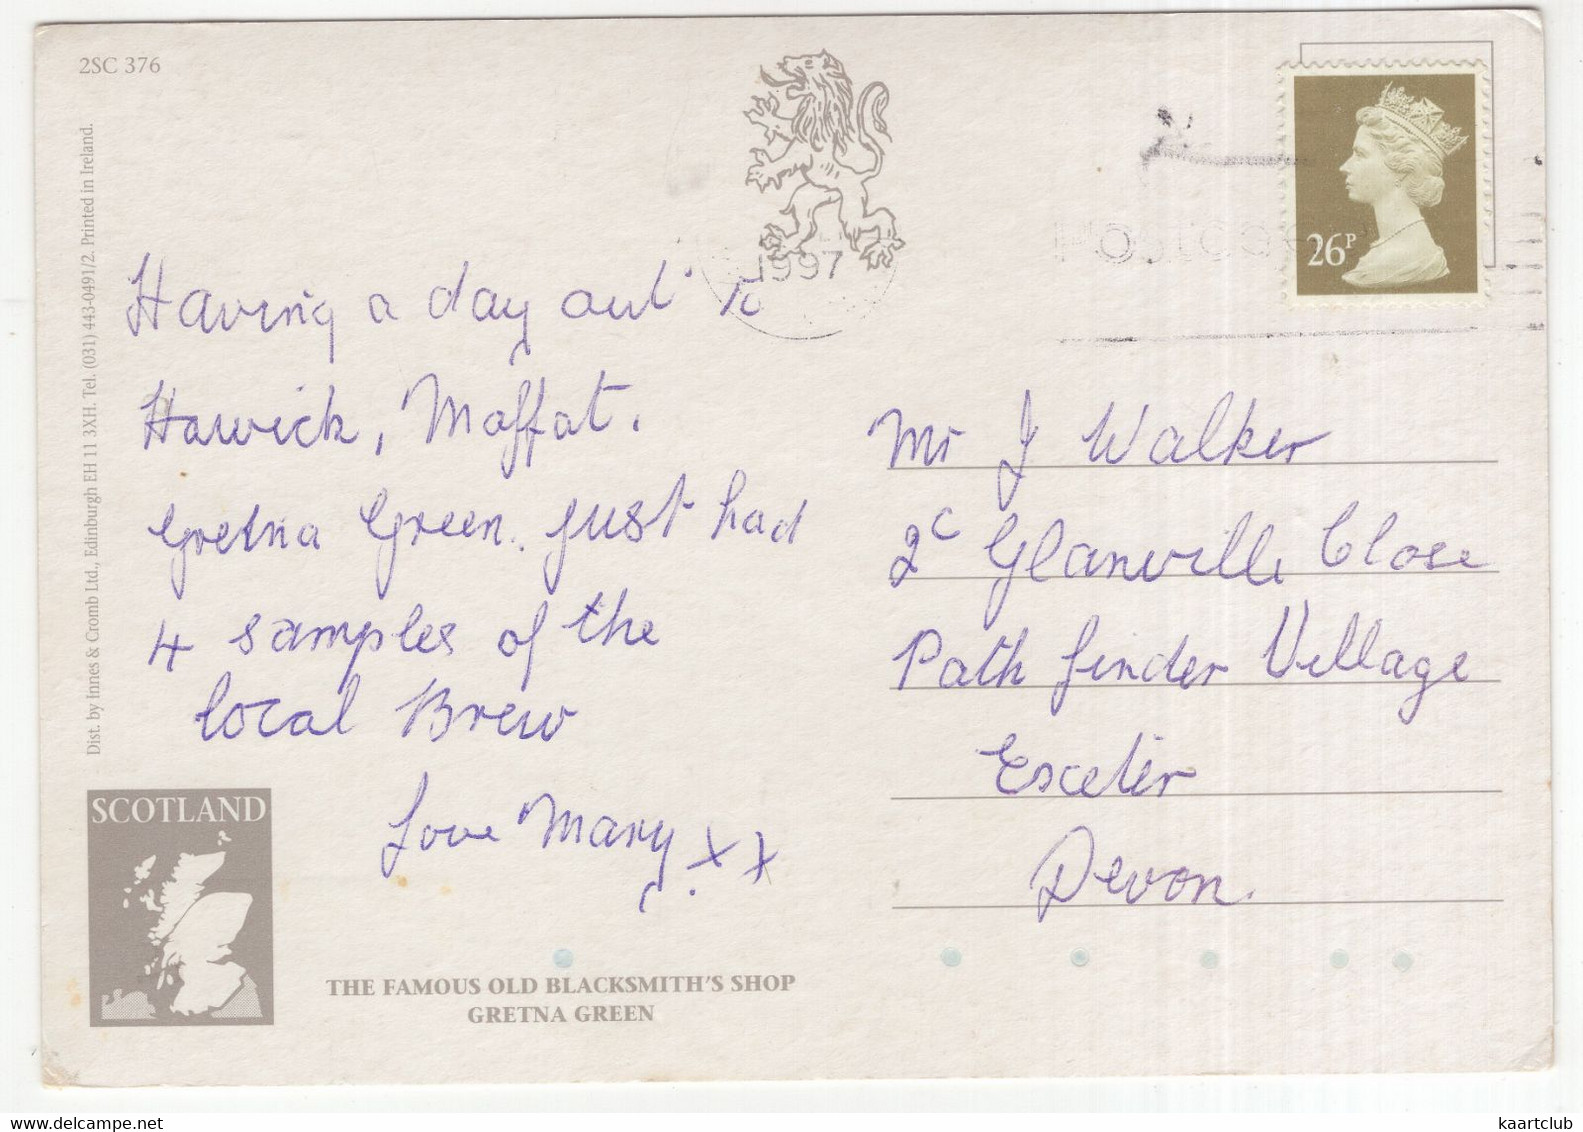 2SC 376
Dist. by Innes & Cromb Ltd., Edinburgh EH 11 3XH. Tel. (031) 443-0491/2. Printed in Ireland.
1997
POSTCO
26P
Having a day out to
Hawick, Moffat.
Gretna Green. just had
4 samples of the
local Brew
Love Mary. xx
Mr J Walker
2c Glanville Close
Path finder Village
Exeter
Devon.
SCOTLAND
THE FAMOUS OLD BLACKSMITH'S SHOP
GRETNA GREEN
www.delcampe.net
kaartclub